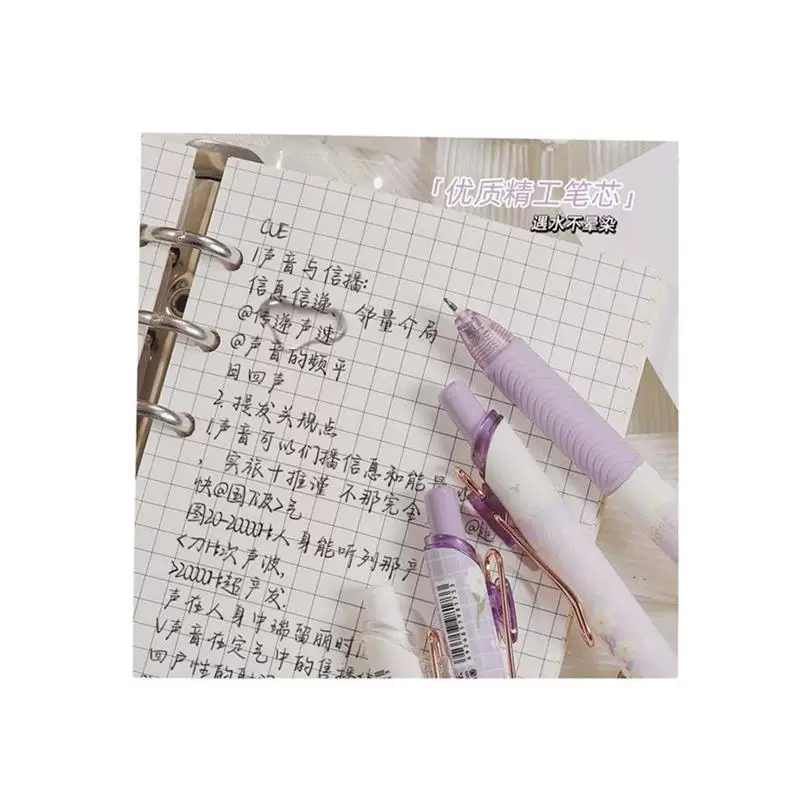 「优质精工笔芯」
遇水不晕染
CUE
1声音与信播:
信息信递、邻量介局
@传递声速
@声音的频平
目回声
2.提发关规点
1.声音可以们播信息和能量
, 实旅十推谨 不那完全
快@国>液>气
图20-20000Hz人身能听列那声
<20Hz次声波,
>20000Hz超声发.
声在人身中瑞留丽时
V声音在定气中的售播
回户性的